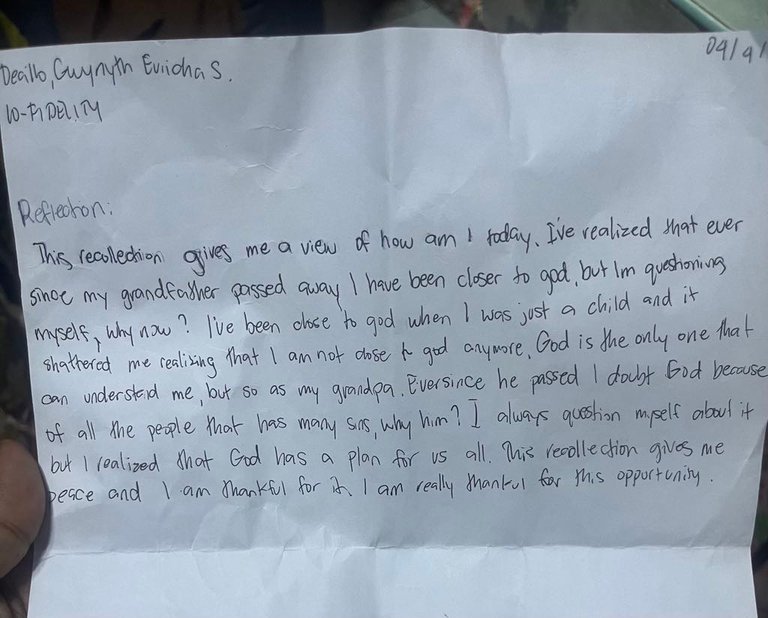 Decillo, Gwynyth Eviicha S.
10-FIDELITY
04/4/
Reflection:
This recollection gives me a view of how am I today. I've realized that ever
since my grandfather passed away I have been closer to god, but Im questioning
myself, why now? I've been close to god when I was just a child and it
shattered me realizing that I am not close to god anymore. God is the only one that
can understand me, but so as my grandpa. Eversince he passed I doubt God because
of all the people that has many sins, why him? I always question myself about it
but I realized that God has a plan for us all. This recollection gives me
peace and I am thankful for it. I am really thankful for this opportunity.